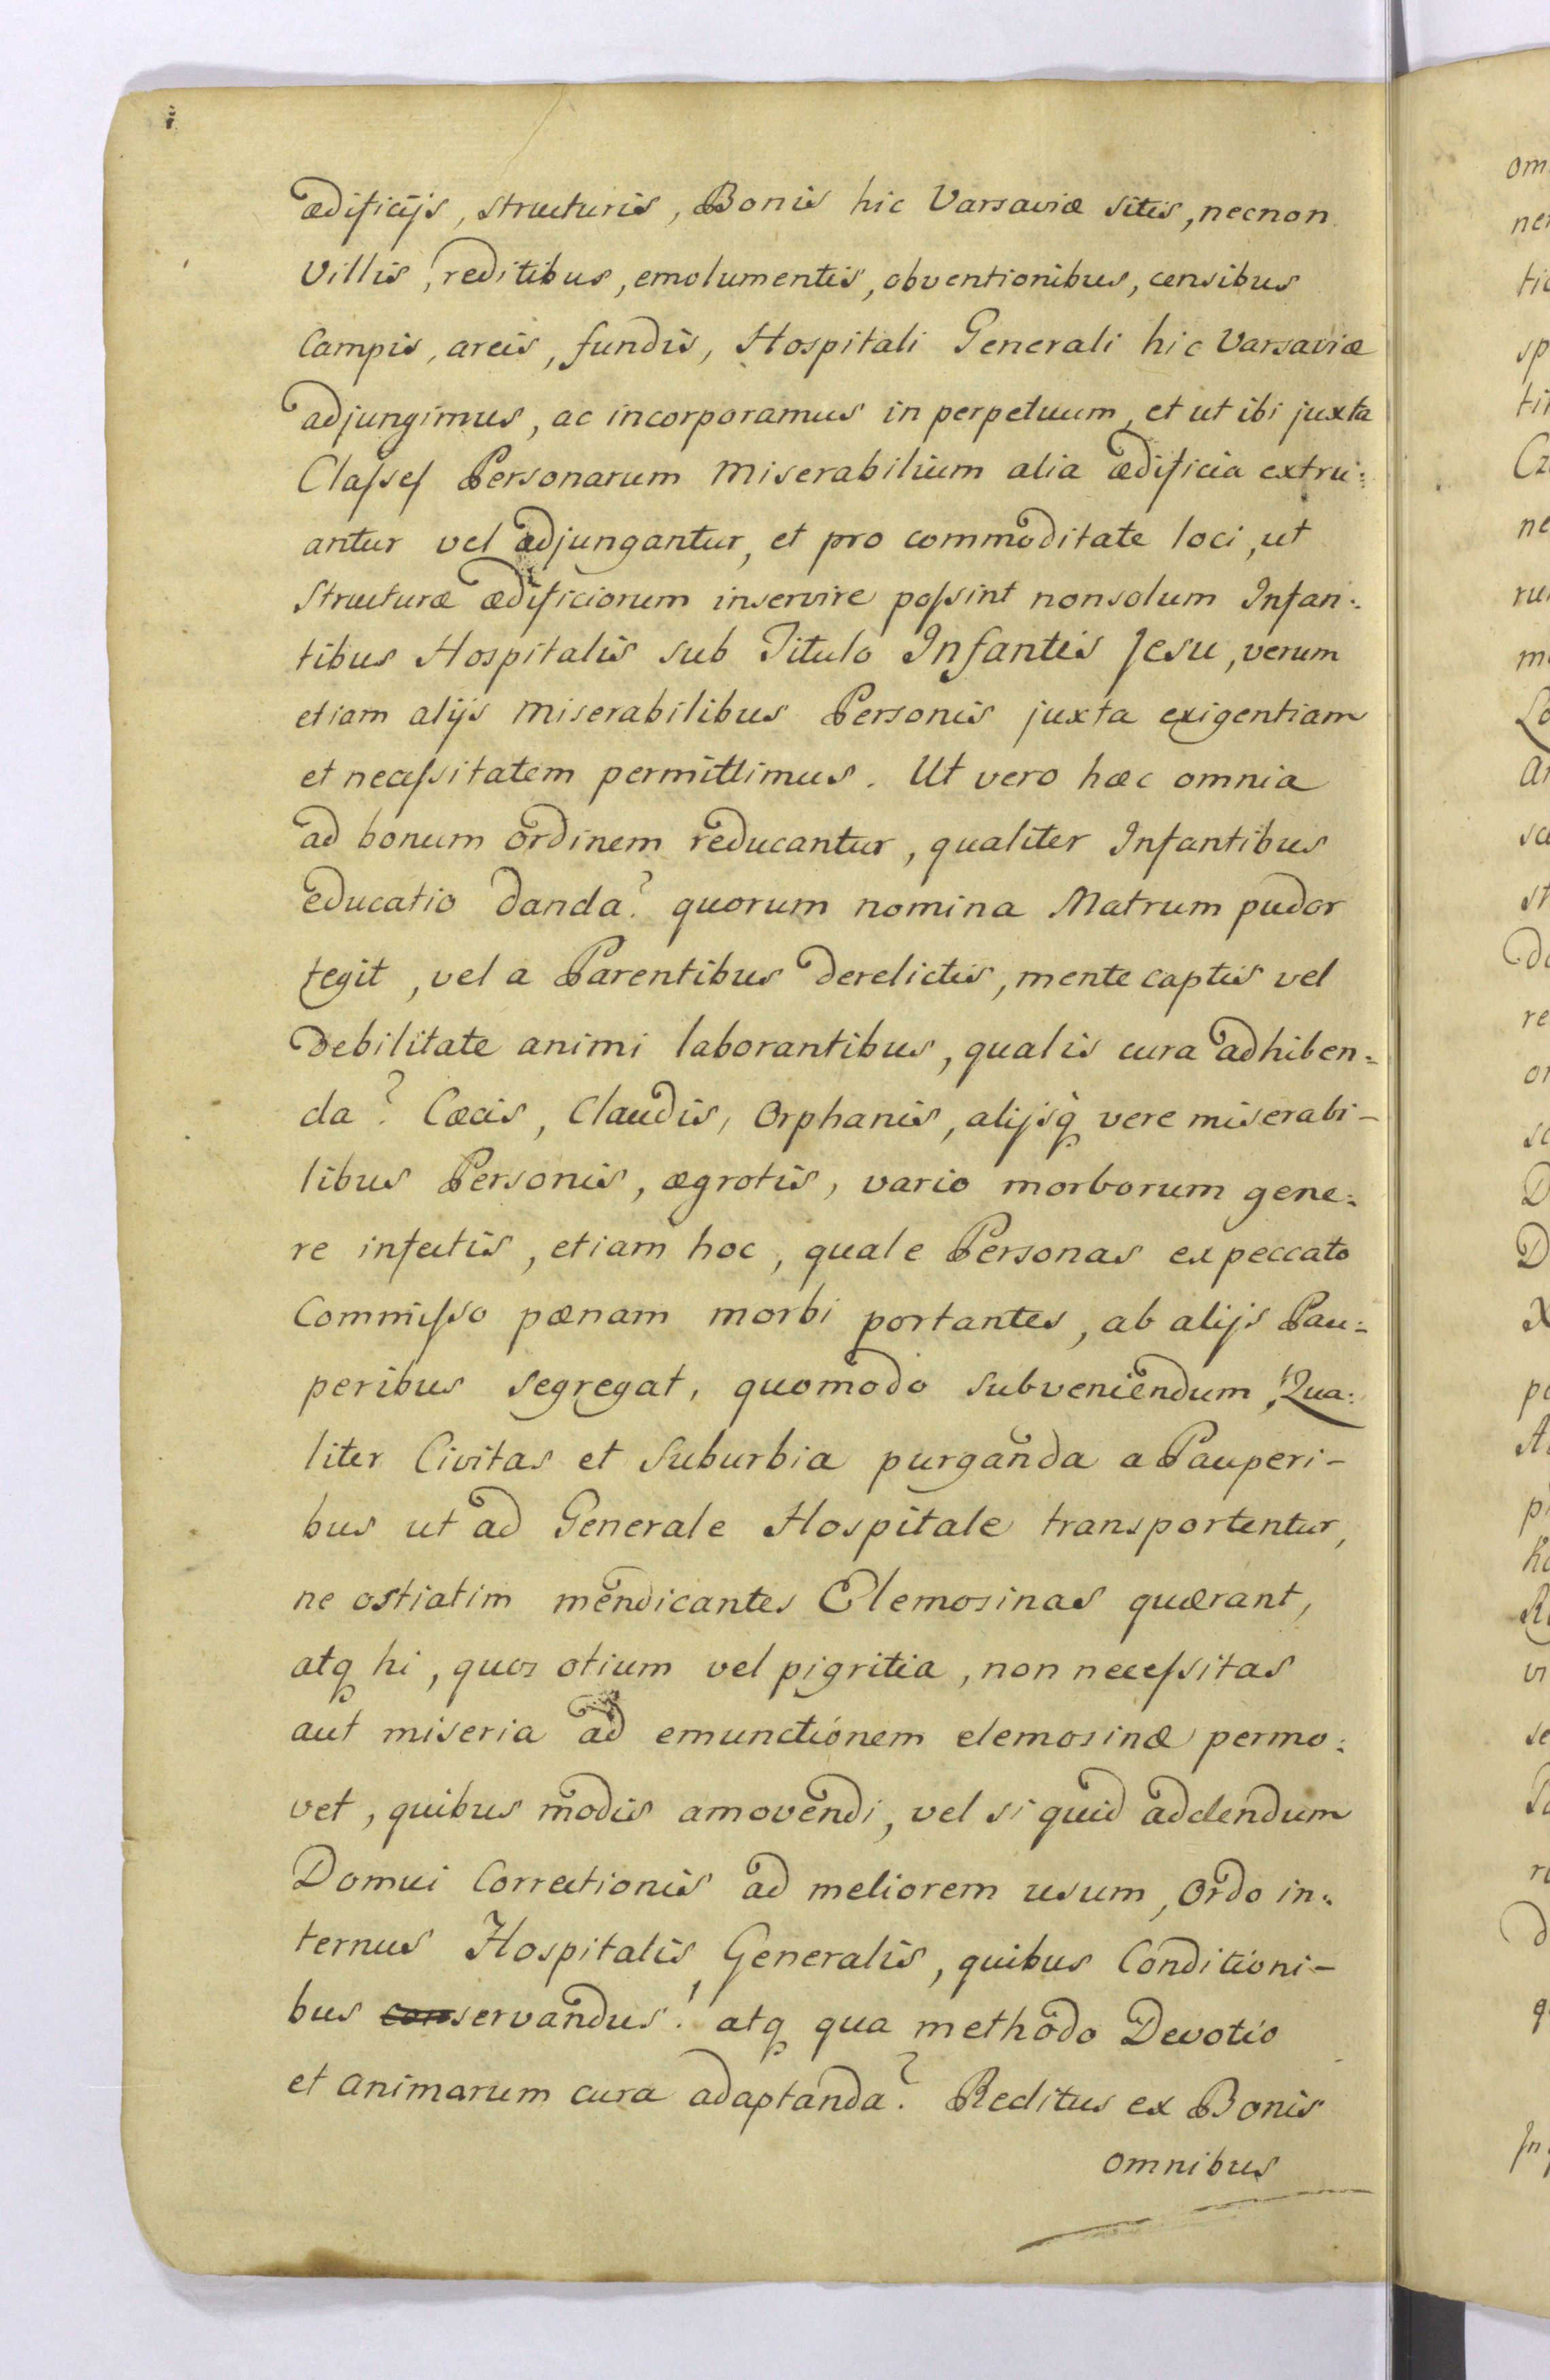 ædificijs, structuris, Bonis hic Varsaviæ sitis, necnon
Villis, reditibus, emolumentis, obventionibus, censibus
Campis, areis, fundis, Hospitali Generali hic Varsaviæ
adjungimus, ac incorporamus in perpetuum, et ut ibi juxta
Classes Personarum Miserabilium alia ædificia extru:
antur vel adjungantur, et pro commoditate loci, ut
Structuræ ædificiorum inservire possint nonsolum Infan:
tibus Hospitalis sub Titulo Infantis Jesu, verum
etiam alijs Miserabilibus Personis juxta exigentiam
et necessitatem permittimus. Ut vero hæc omnia
ad bonum ordinem reducantur, qualiter Infantibus
educatio danda? quorum nomina Matrum pudor
tegit, vel a Parentibus derelictis, mente captis vel
debilitate animi laborantibus, qualis cura adhiben:
da? Cæcis, Claudis, Orphanis, alijsq vere miserabi-
libus Personis, ægrotis, vario morborum gene:
re infectis, etiam hoc, quale Personas ex peccato
Commisso pænam morbi portantes, ab alijs Pau:
peribus segregat, quomodo subveniendum, Qua:
liter Civitas et Suburbia purganda a Pauperi-
bus ut ad Generale Hospitale transportentur,
ne ostiatim mendicantes Elemosinas quærant,
atq hi, quos otium vel pigritia, non necessitas
aut miseria ad emunctionem elemosinæ permo:
vet, quibus modis amovendi, vel si quid addendum
Domui Correctionis ad meliorem usum, Ordo in:
ternus Hospitalis Generalis, quibus Conditioni-
bus conservandus! atq qua methodo Devotio
et animarum cura adaptanda? Reditus ex Bonis
omnibus